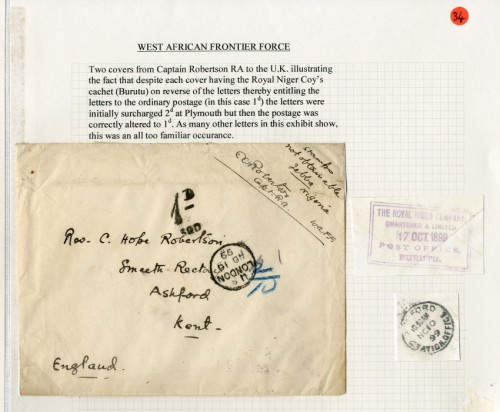 34
WEST AFRICAN FRONTIER FORCE
Two covers from Captain Robertson RA to the U.K. illustrating
the fact that despite each cover having the Royal Niger Coy's
cachet (Burutu) on reverse of the letters thereby entitling the
letters to the ordinary postage (in this case 1d) the letters were
initially surcharged 2d at Plymouth but then the postage was
correctly altered to 1d. As many other letters in this exhibit show,
this was an all too familiar occurance.
Stamps
not obtainable
Jebba Nigeria
Robertson
Capt. RA
1D
Rev. C. Hope Robertson
Smeeth Rectory
Ashford
Kent.
England.
LONDON
NO 19
99
THE ROYAL NIGER COMPANY
CHARTERED & LIMITED
17 OCT. 1899
POST OFFICE
BURUTU.